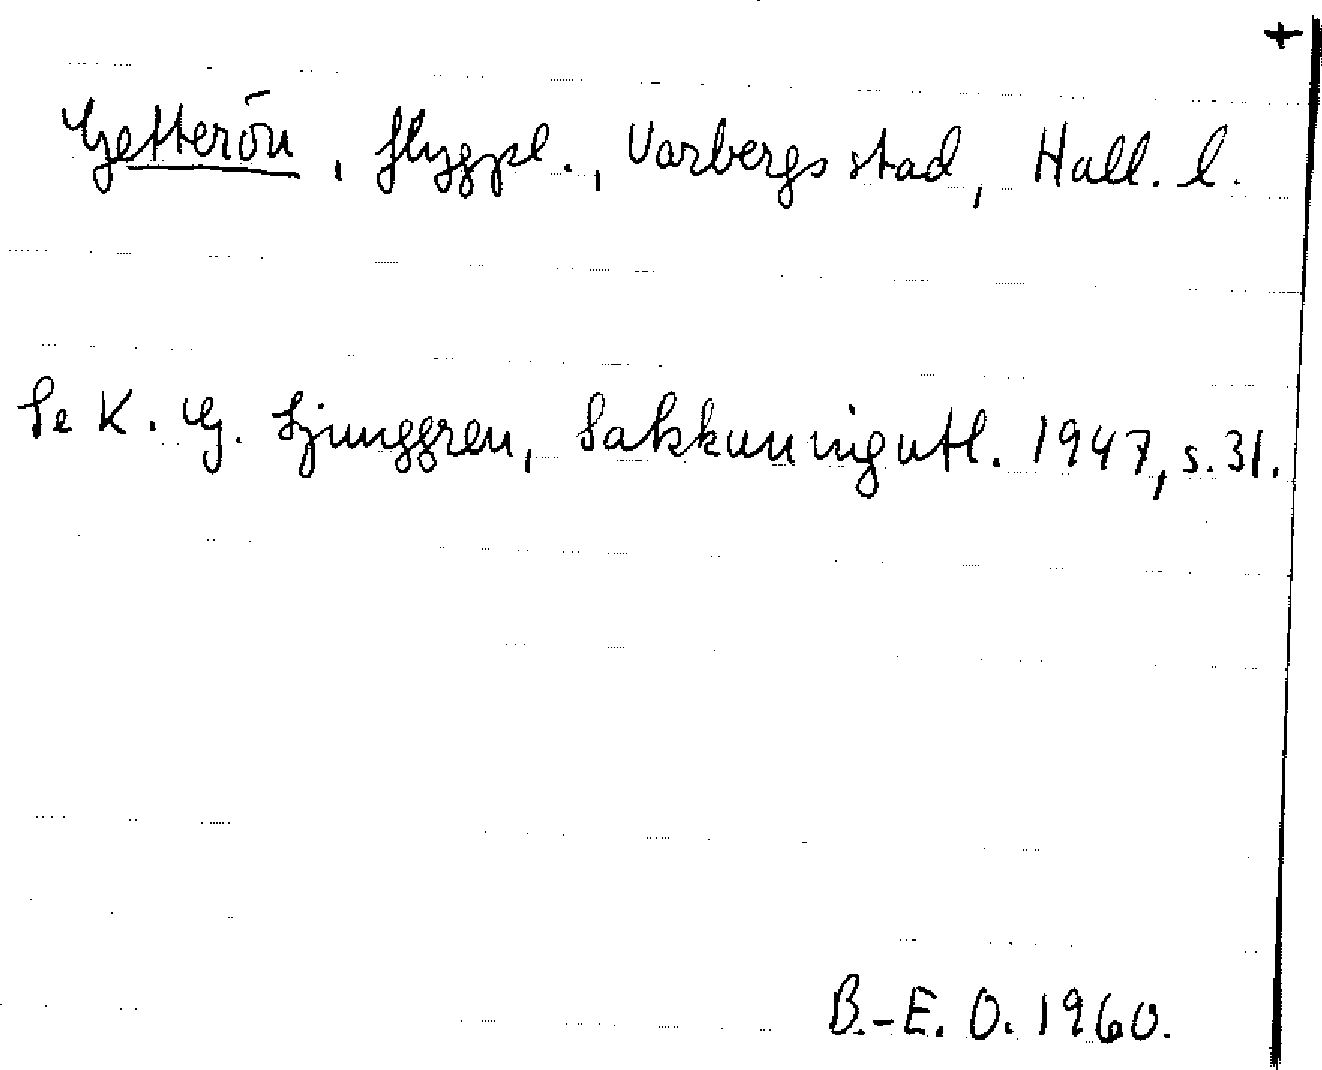 +
Getterön, flygpl., Varbergs stad, Hall. l.
Se K. G. Ljunggren, Sakkunnigutl. 1947, s. 31.
B.-E. O. 1960.